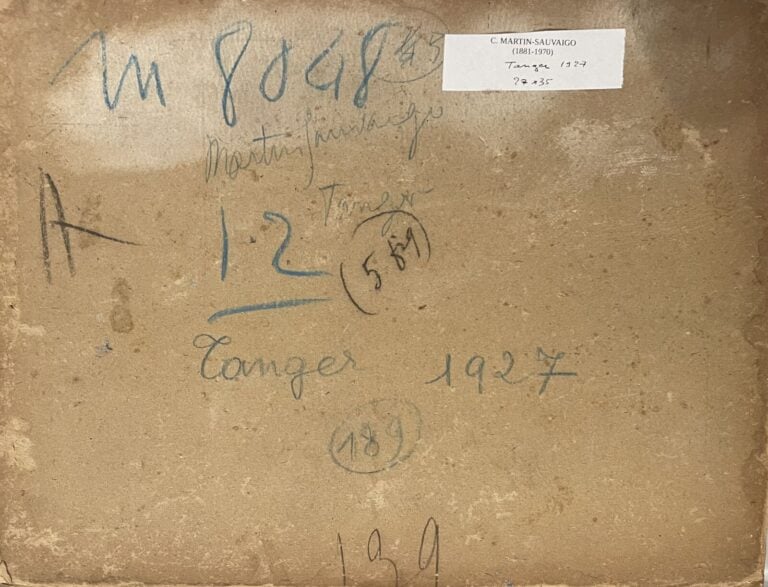 m 8048
C. MARTIN-SAUVAIGO
(1881-1970)
Tanger 1927
27 x 35
Martin Sauvaigo
Tanger
A
12
Tanger 1927
189
139